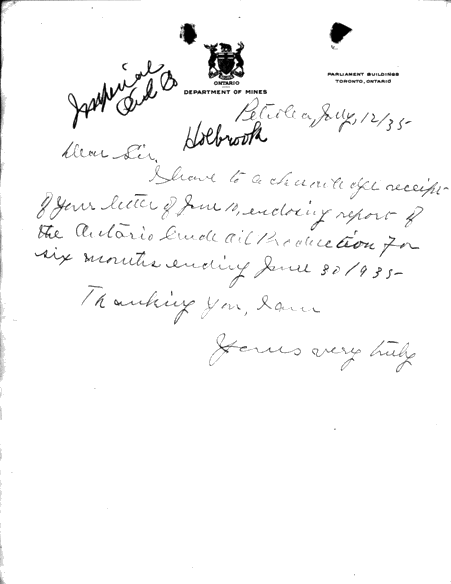 ONTARIO
DEPARTMENT OF MINES
PARLIAMENT BUILDINGS
TORONTO, ONTARIO
Imperial
Oil Co
Petrolea, July, 12/35
Holbrook
Dear Sir,
I have to acknowledge receipt
of your letter of June 10, enclosing report of
the Ontario Crude Oil Production for
six months ending June 30/1935
Thanking you, I am
Yours very truly